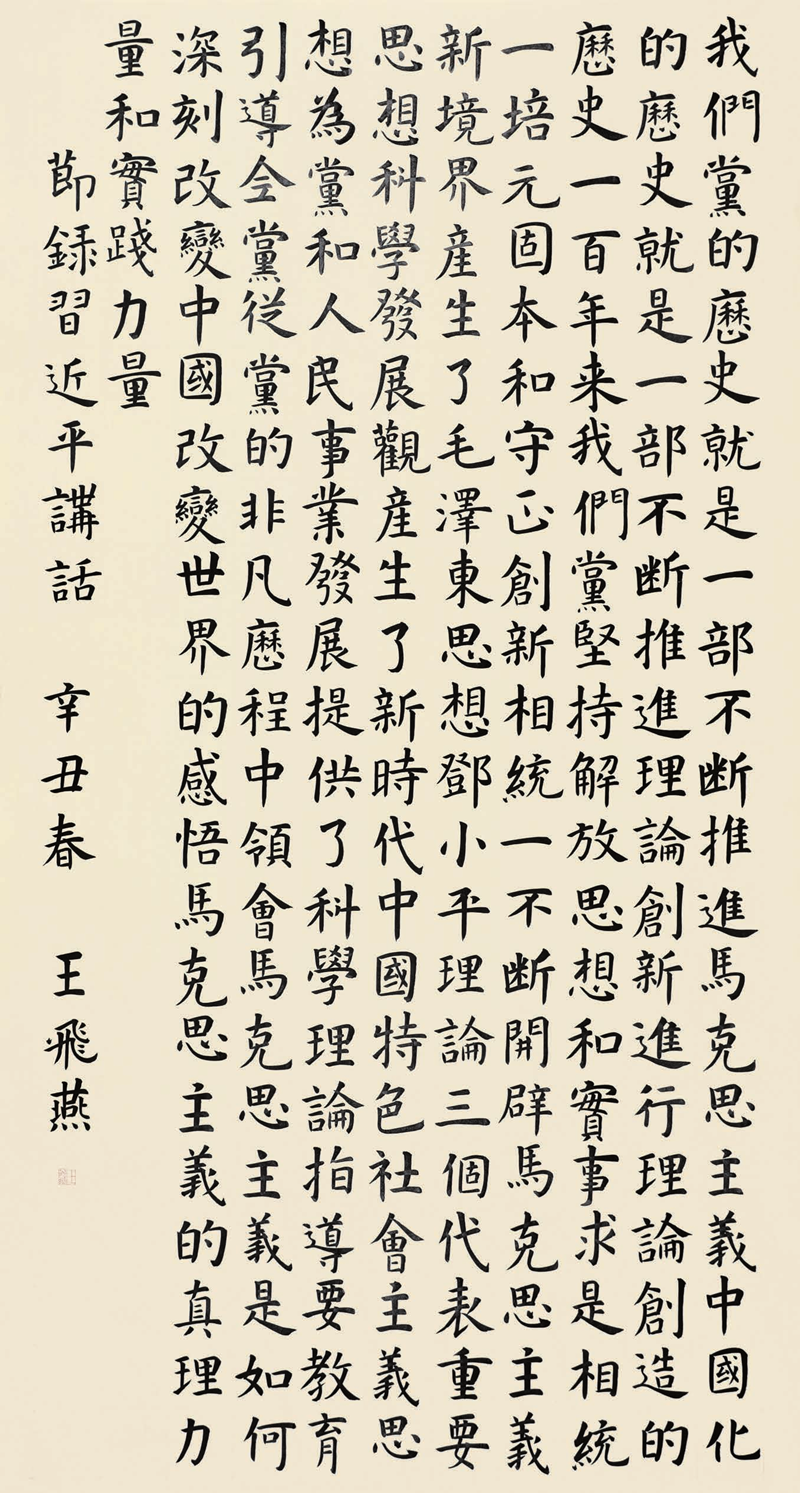 我們黨的歷史就是一部不断推進馬克思主義中國化
的歷史就是一部不断推進理論創新進行理論創造的
歷史一百年来我們黨堅持解放思想和實事求是相統
一培元固本和守正創新相統一不断開辟馬克思主義
新境界産生了毛澤東思想鄧小平理論三個代表重要
思想科學發展觀産生了新時代中國特色社會主義思
想為黨和人民事業發展提供了科學理論指導要教育
引導全黨從黨的非凡歷程中領會馬克思主義是如何
深刻改變中國改變世界的感悟馬克思主義的真理力
量和實踐力量
節録習近平講話 辛丑春 王飛燕